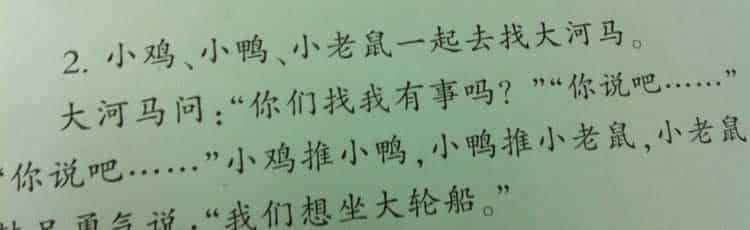 2. 小鸡、小鸭、小老鼠一起去找大河马。
大河马问:“你们找我有事吗?”“你说吧……”
“你说吧……”小鸡推小鸭,小鸭推小老鼠,小老鼠
勇气说:“我们想坐大轮船。”